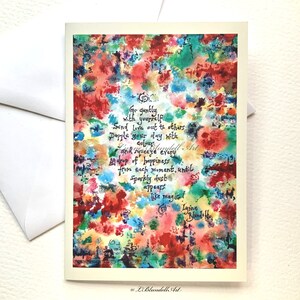 Go gently
with yourself
Send love out to others
Dapple your day with
colour
and squeeze every
drop of happiness
from each moment, until
Sparkly dust
appears
like magic
© L Blundell Art